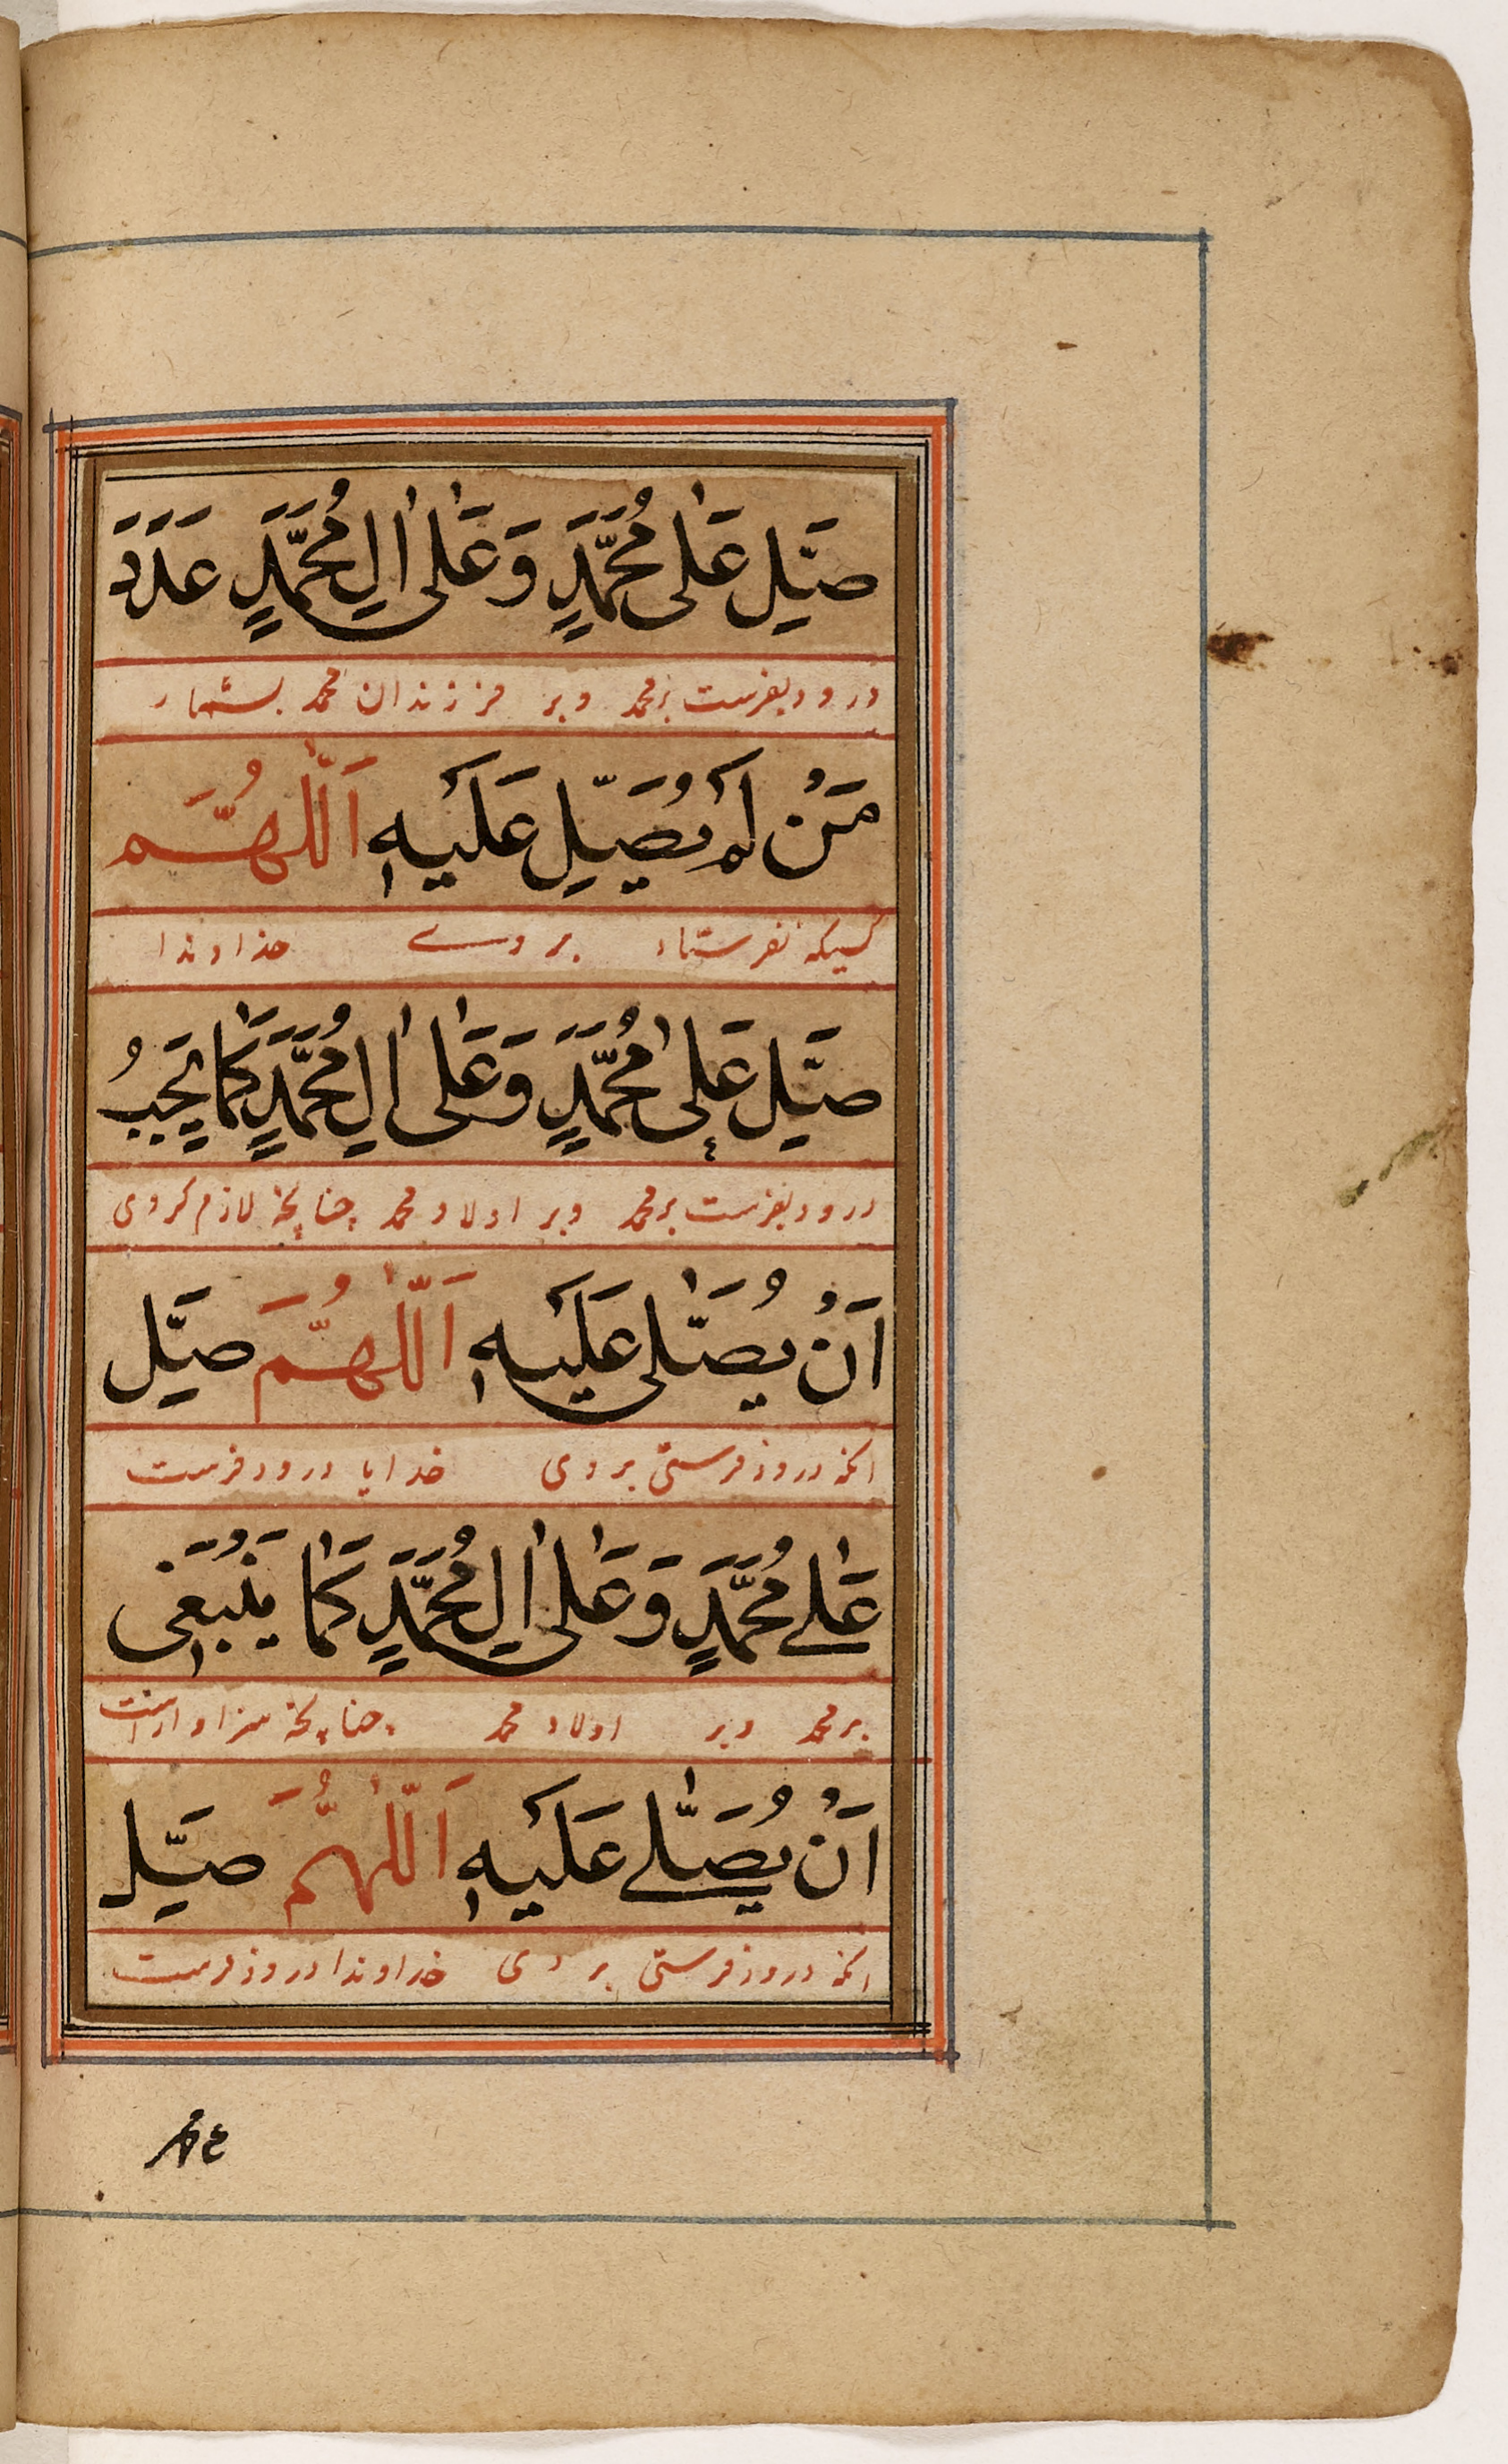 صَلِّ عَلٰى مُحَمَّدٍ وَعَلٰى اٰلِ مُحَمَّدٍ عَدَدَ
درود بفرست بر محمد و بر فرزندان محمد بشمار
مَنْ لَمْ يُصَلِّ عَلَيْهِ اَللّٰهُمَّ
کسیکه نفرستاد بر وے خداوندا
صَلِّ عَلٰى مُحَمَّدٍ وَعَلٰى اٰلِ مُحَمَّدٍ كَمَا يَجِبُ
درود بفرست بر محمد و بر اولاد محمد چنانچه لازم کردی
اَنْ يُصَلّٰى عَلَيْهِ اَللّٰهُمَّ صَلِّ
انکه درود فرستی بر وی خدایا درود فرست
عَلٰے مُحَمَّدٍ وَعَلٰى اٰلِ مُحَمَّدٍ كَمَا يَنْبَغِى
بر محمد و بر اولاد محمد چنانچه سزاوار است
اَنْ يُصَلّٰے عَلَيْهِ اَللّٰهُمَّ صَلِّ
انکه درود فرستی بر وی خداوندا درود فرست